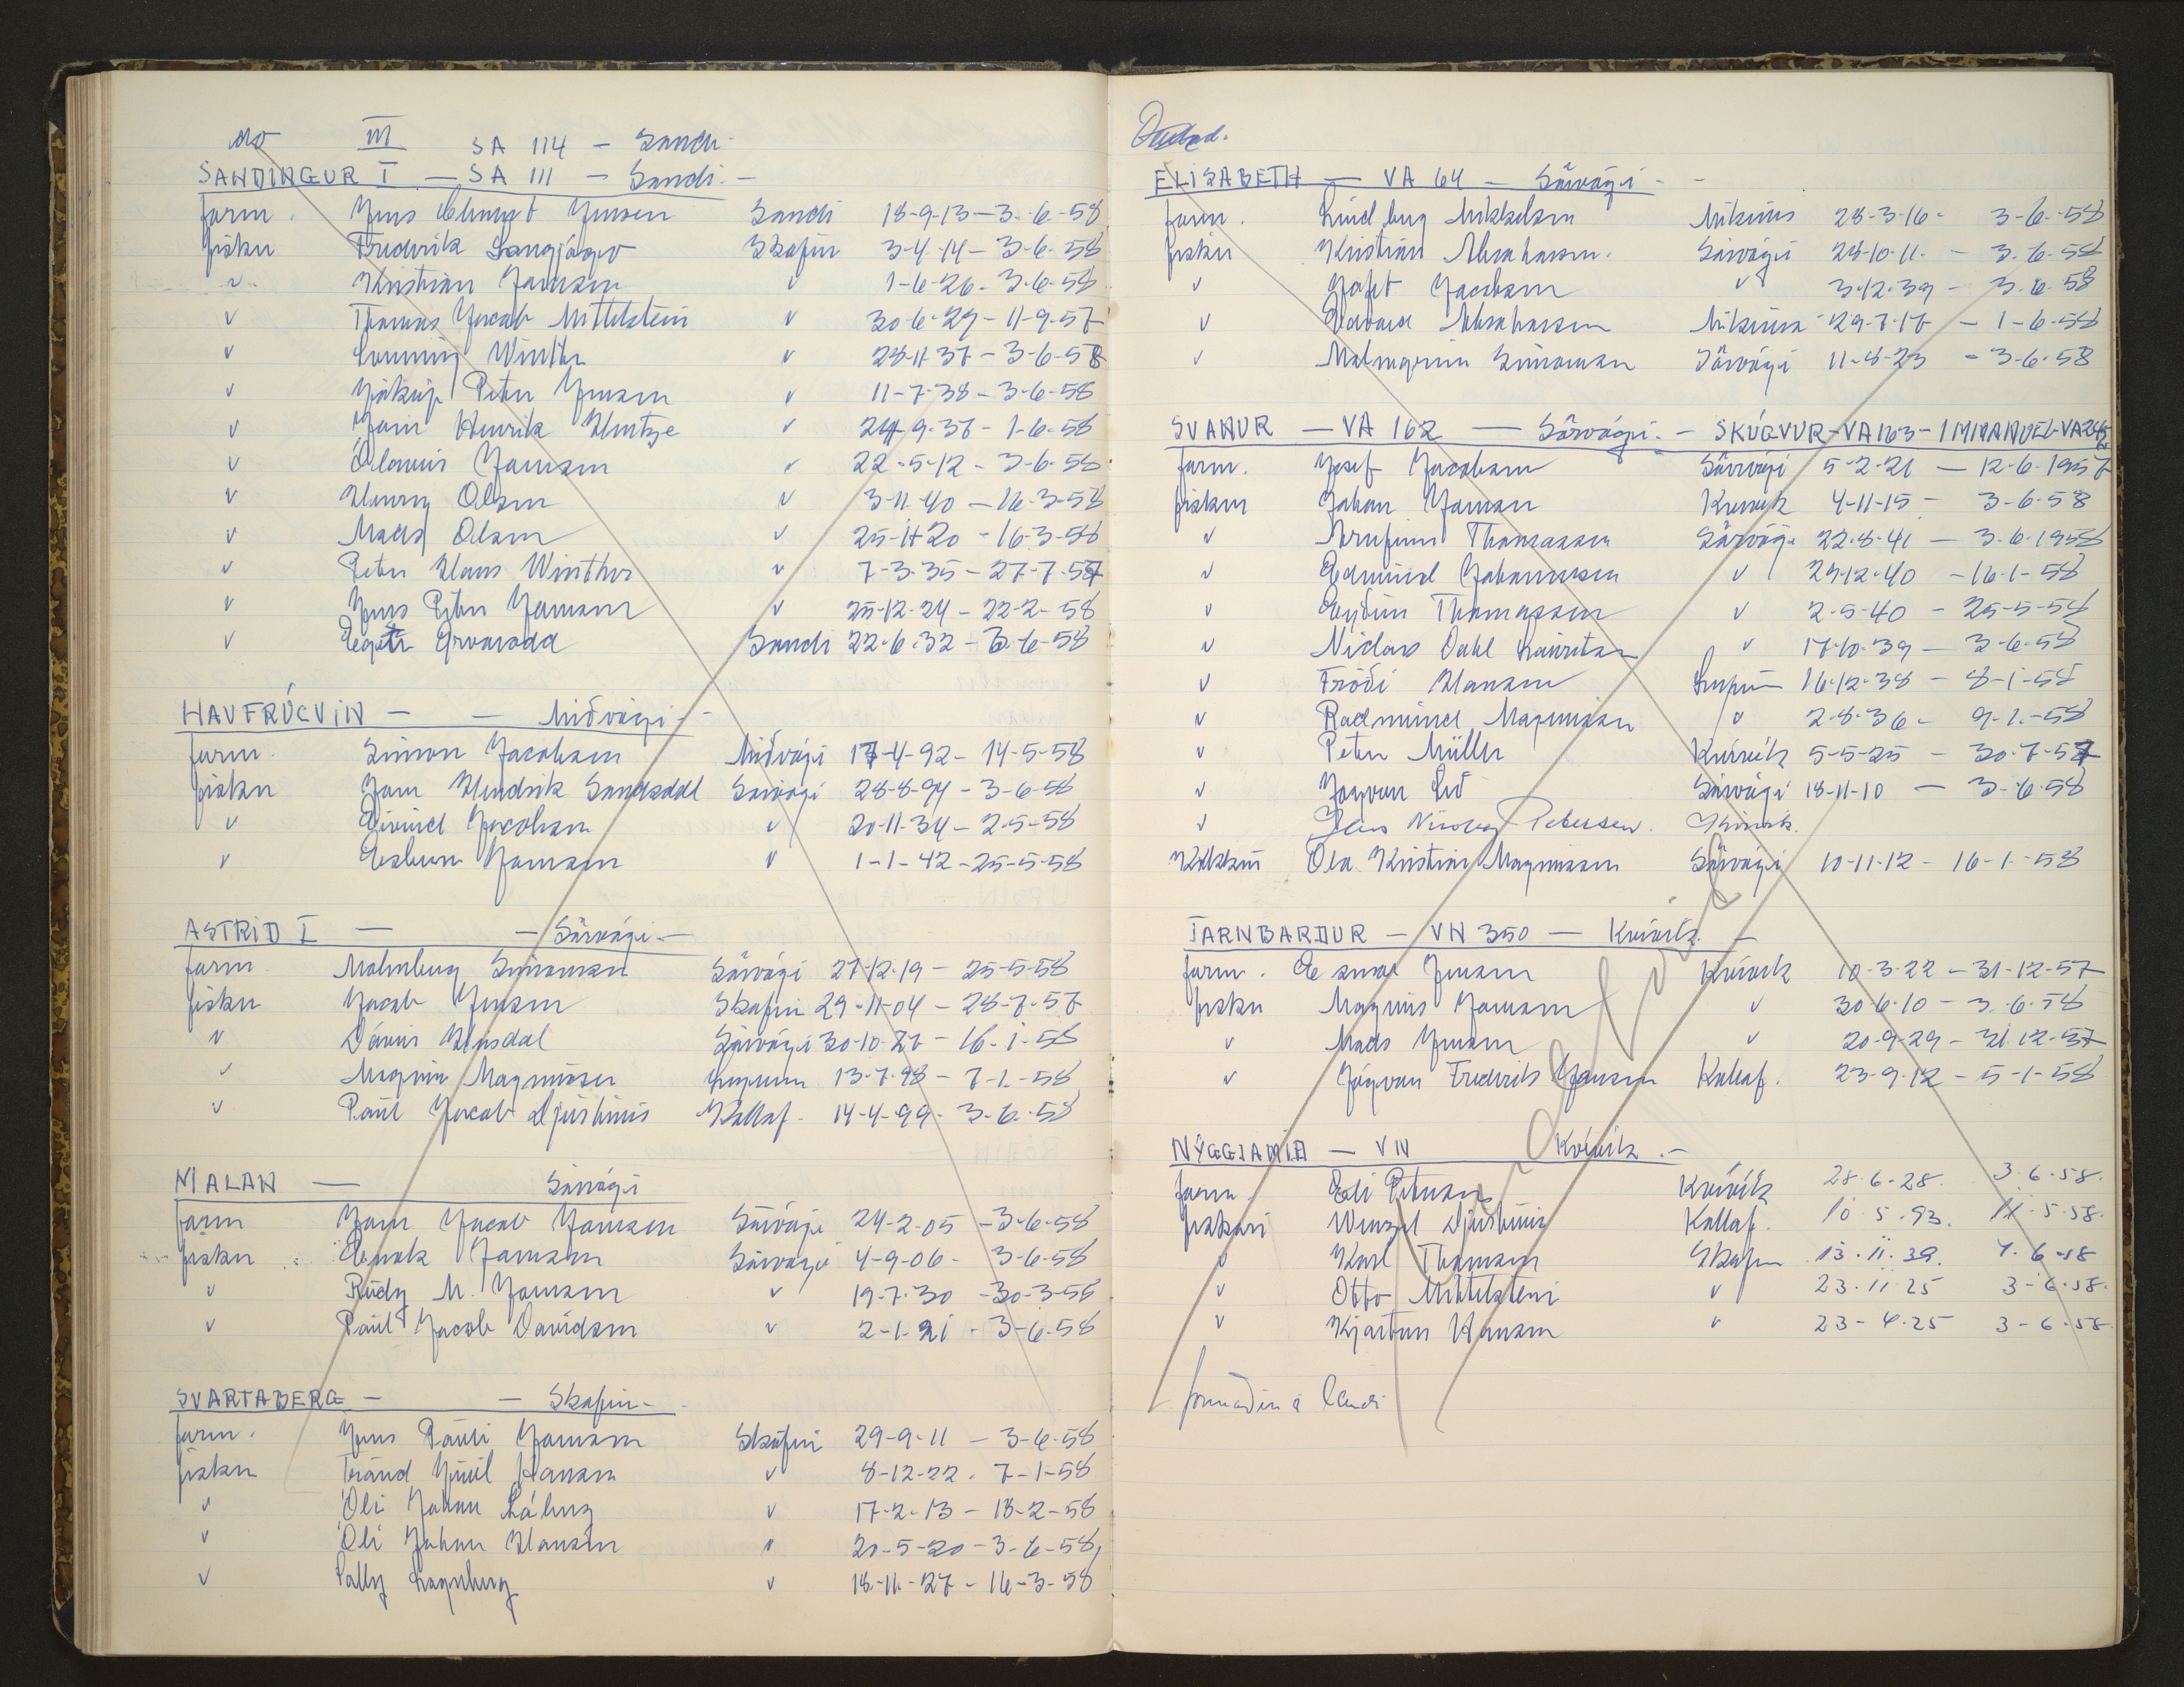 do III SA 114 - Sandi -
SANDINGUR I - SA 111 - Sandi -
form. Jens Clement Jensen Sandi 18-9-13 - 3-6-58
fiskn Fredrik Langjógv Skopin 3-4-14 - 3-6-58
v Kristian Joensen v 1-6-26 - 3-6-58
v Thomas Jacob Mittelstein v 30-6-29 - 11-9-57
v Winther v 28-11-37 - 3-6-58
v Jákup Peter Jensen v 11-7-38 - 3-6-58
v Henrik Hentze v 24-9-37 - 1-6-58
v Ólavus Joensen v 22-5-12 - 3-6-58
v Henry Olsen v 3-11-40 - 16-3-58
v Mads Olsen v 25-11-20 - 16-3-58
v Peter Hans Winther v 7-3-35 - 27-7-57
v Jens Peter Joensen v 25-12-24 - 22-2-58
v Sandi 22-6-32 - 3-6-58
HAVFRÚGVIN - - Miðvági -
form. Simon Jacobsen Miðvági 17-4-92 - 14-5-58
fiskn Hendrik Sandsdal Sørvági 28-8-94 - 3-6-58
v Eivind Jacobsen v 20-11-34 - 2-5-58
v Esbern Joensen v 1-1-42 - 25-5-58
ASTRID I - - Sørvági -
form. Malmberg Simonsen Sørvági 27-12-19 - 25-5-58
fiskn Jacob Jensen Skopin 29-11-04 - 28-7-57
v Dávur Sørvági 30-10-27 - 16-1-58
v Magnus Magnussen 13-7-98 - 7-1-58
v Paul Jacob Djurhuus Kollaf. 14-4-99 - 3-6-58
MALAN - Sørvági
form Jacob Joensen Sørvági 24-2-05 - 3-6-58
fiskn Enok Joensen Sørvági 4-9-06 - 3-6-58
v Rudy M. Joensen v 19-7-30 - 30-3-58
v Paul Jacob Davidsen v 2-1-21 - 3-6-58
SVARTABERG - - Skopin -
form. Jens Pauli Joensen Skopin 29-9-11 - 3-6-58
fiskn Tránd Juul Hansen v 8-12-22 - 7-1-58
v Óli Johan v 17-2-13 - 18-2-58
v Óli Johan Hansen v 20-5-20 - 3-6-58
v v 18-11-27 - 16-3-58
ELISABETH - VA 64 - Sørvági -
form. Lindberg Mikkelsen Mikines 28-3-16 - 3-6-58
fiskn Kristian Abrahamsen. Sørvági 28-10-11 - 3-6-58
v Jacobsen v 3-12-39 - 3-6-58
v Edvard Abrahamsen Mikines 29-7-17 - 1-6-58
v Malmgrim Simonsen Sørvági 11-8-23 - 3-6-58
SVANUR - VA 162 - Sørvági - SKÚGVUR - VA 163 - IMMANUEL - VA
form. Josef Jacobsen Sørvági 5-2-21 - 12-6-1957
fiskn Johan Joensen Kvívík 4-11-15 - 3-6-58
v Arnfinn Thomassen Sørvági 22-8-41 - 3-6-1958
v Edmund Johannesen v 29-12-40 - 16-1-58
v Eyðun Thomassen v 2-5-40 - 25-5-58
v Niclas Dahl Lauritsen v 17-10-39 - 3-6-58
v Fróði Hansen 16-12-38 - 8-1-58
v Radmund Magnussen v 2-8-36 - 9-1-58
v Peter Müller Kvívík 5-5-25 - 30-7-57
v Jógvan Lið Sørvági 18-11-10 - 3-6-58
v Nicolaj Petersen. Kvívík.
Ola Kristian Magnussen Sørvági 10-11-12 - 16-1-58
JARNBARDUR - VN 350 - Kvívík -
form. Jensen Kvívík 10-3-22 - 31-12-57
fiskn Magnus Joensen v 30-6-10 - 3-6-58
v Mads Jensen v 20-9-29 - 31-12-57
v Jógvan Frederik Joensen Kollaf. 23-9-12 - 5-1-58
NÝGGJAMID - VN Kvívík -
form. Eli Petersen Kvívík 28-6-28. 3-6-58.
fiskari Wenzel Djurhuus Kollaf. 10-5-93. 11-5-58.
v Karl Thomsen Skopin 13-11-39. 4-6-58
v Otto Mittelstein v 23-11-25 3-6-58.
v Kjartan Hansen v 23-4-25 3-6-58
formaðin á landi